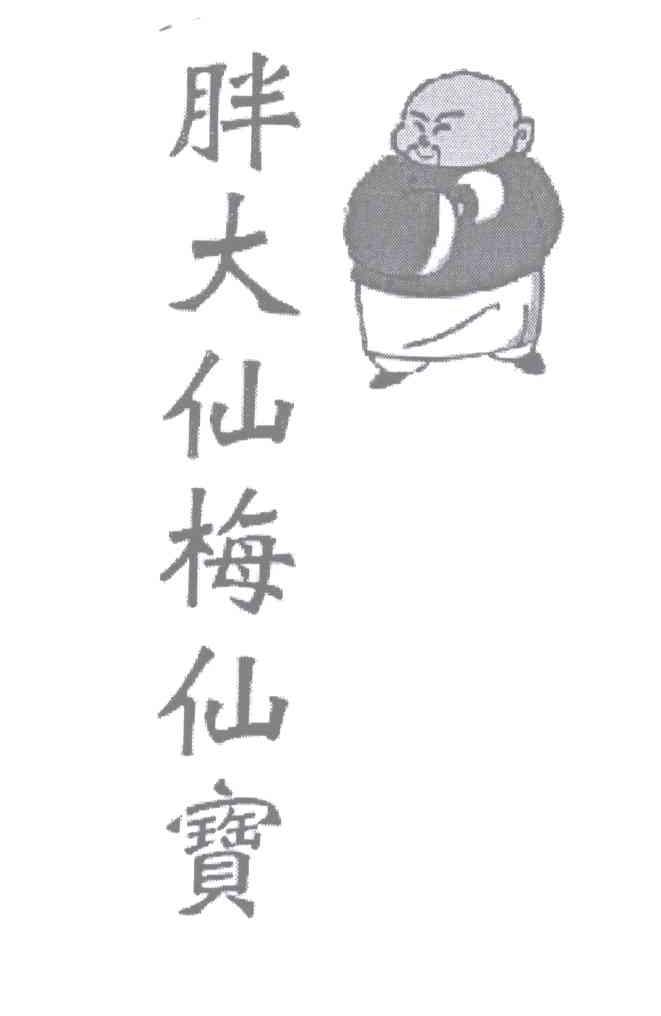 胖大仙梅仙寶